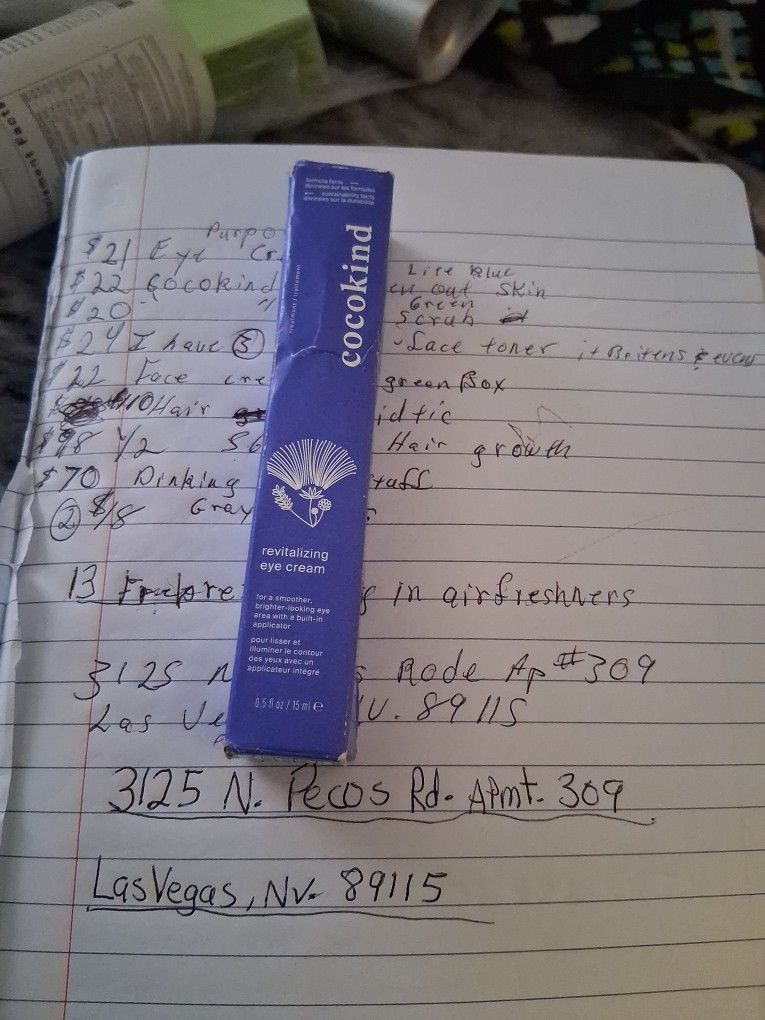 ment Facts
formula facts
données sur les formules
sustainability facts
données sur la durabilité
cocokind
treatment / traitement
revitalizing
eye cream
for a smoother,
brighter-looking eye
area with a built-in
applicator
pour lisser et
illuminer le contour
des yeux avec un
applicateur intégré
0.5 fl oz / 15 ml e
Purpo
$21 Eye Cr
Lite Blue
$22 Cocokind en out Skin
Green
$20 " " Scrub
$24 I have 5 Lace toner it Britens & evens
$22 Face cre green Box
$10 Hair idtic
$98 1/2 Hair growth
$70 Dinking taff
2 $18 Gray
13 in airfreshners
3125 N Rode Ap #309
Las Ve V. 89115
3125 N. Pecos Rd. APmt. 309
Las Vegas, Nv. 89115